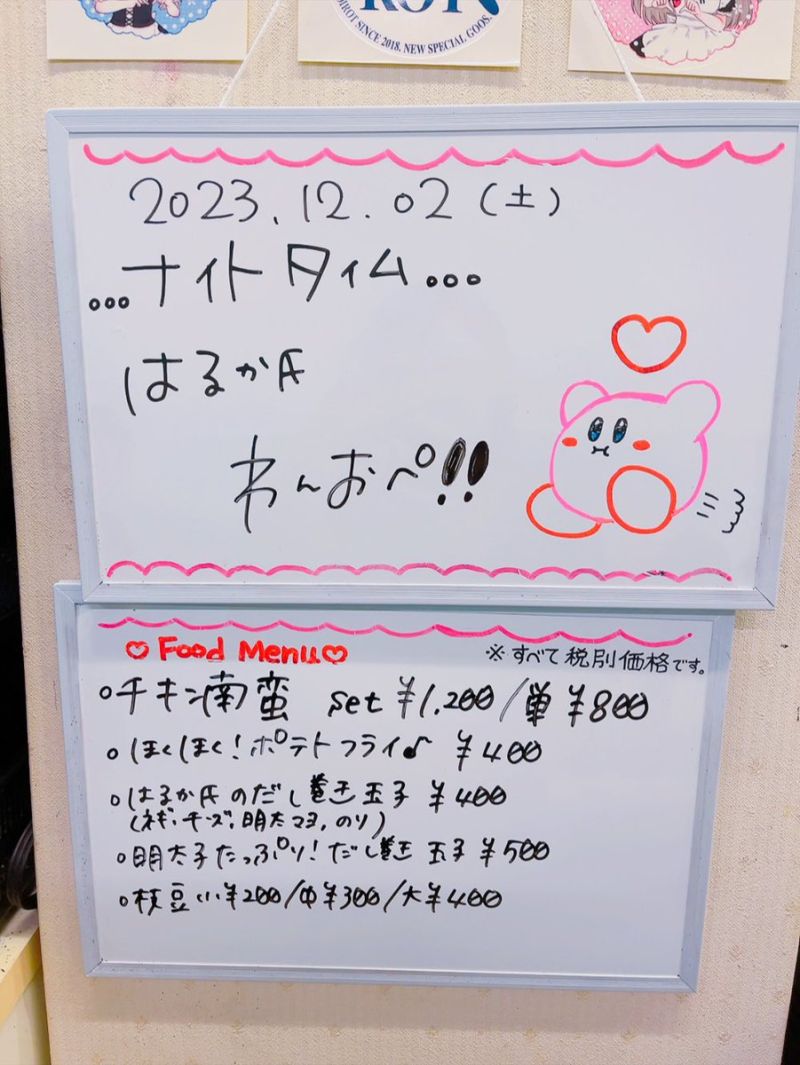 MIROT SINCE 2018. NEW SPECIAL GOOS.
2023.12.02(土)
...ナイトタイム...
はるか氏
わんおぺ!!
♡Food Menu♡
※すべて税別価格です。
○チキン南蛮 set ¥1,200/単 ¥800
○ほくほく!ポテトフライ♪ ¥400
○はるか氏のだし巻き玉子 ¥400
(ネギ,チーズ,明太マヨ,のり)
○明太子たっぷり!だし巻き玉子 ¥500
○枝豆 小¥200/中¥300/大¥400